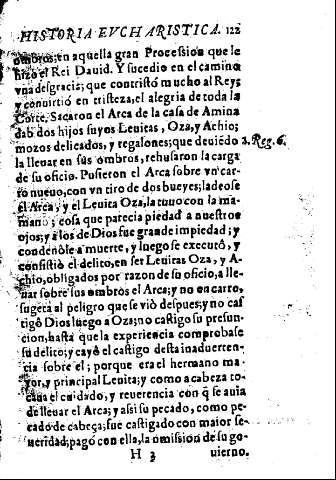 HISTORIA EVCHARISTICA. 122
ombros, en aquella gran Procession que le
hizo el Rei Dauid. Y sucedio en el camino
vna desgracia; que contristó mucho al Rey;
y conuirtió en tristeza, el alegria de toda la
Corte. Sacaron el Arca de la casa de Amina
dab dos hijos suyos Leuitas, Oza, y Achio;
mozos delicados, y regalones; que deuiédo
2. Reg. 6.
la lleuar en sus ombros, rehusaron la carga
de su oficio. Pusieron el Arca sobre vn car-
ro nueuo, con vn tiro de dos bueyes; ladeose
el Arca, y el Leuita Oza, la tuuo con la ma-
mano; cosa que parecia piedad a nuestros
ojos; y a los de Dios fue grande impiedad; y
condenòle a muerte, y luego se executó, y
consistiò el delito, en ser Leuitas Oza, y A-
chio, obligados por razon de su oficio, a lle-
uar sobre sus ombros el Arca; y no en carro,
sugeta al peligro que se viò despues; y no cas
tigô Dios luego a Oza; no castigo su presun-
cion, hasta que la experiencia comprobase
su delito; y cayô el castigo desta inaduerten-
cia sobre el; porque era el hermano ma
yor, y principal Leuita; y como a cabeza to-
caua el cuidado, y reuerencia con q̃ se auia
de lleuar el Arca; y asi su pecado, como pe-
cado de cabeça; fue castigado con maior se-
ueridad; pagó con ella, la omission de su go-
H 3
uierno.